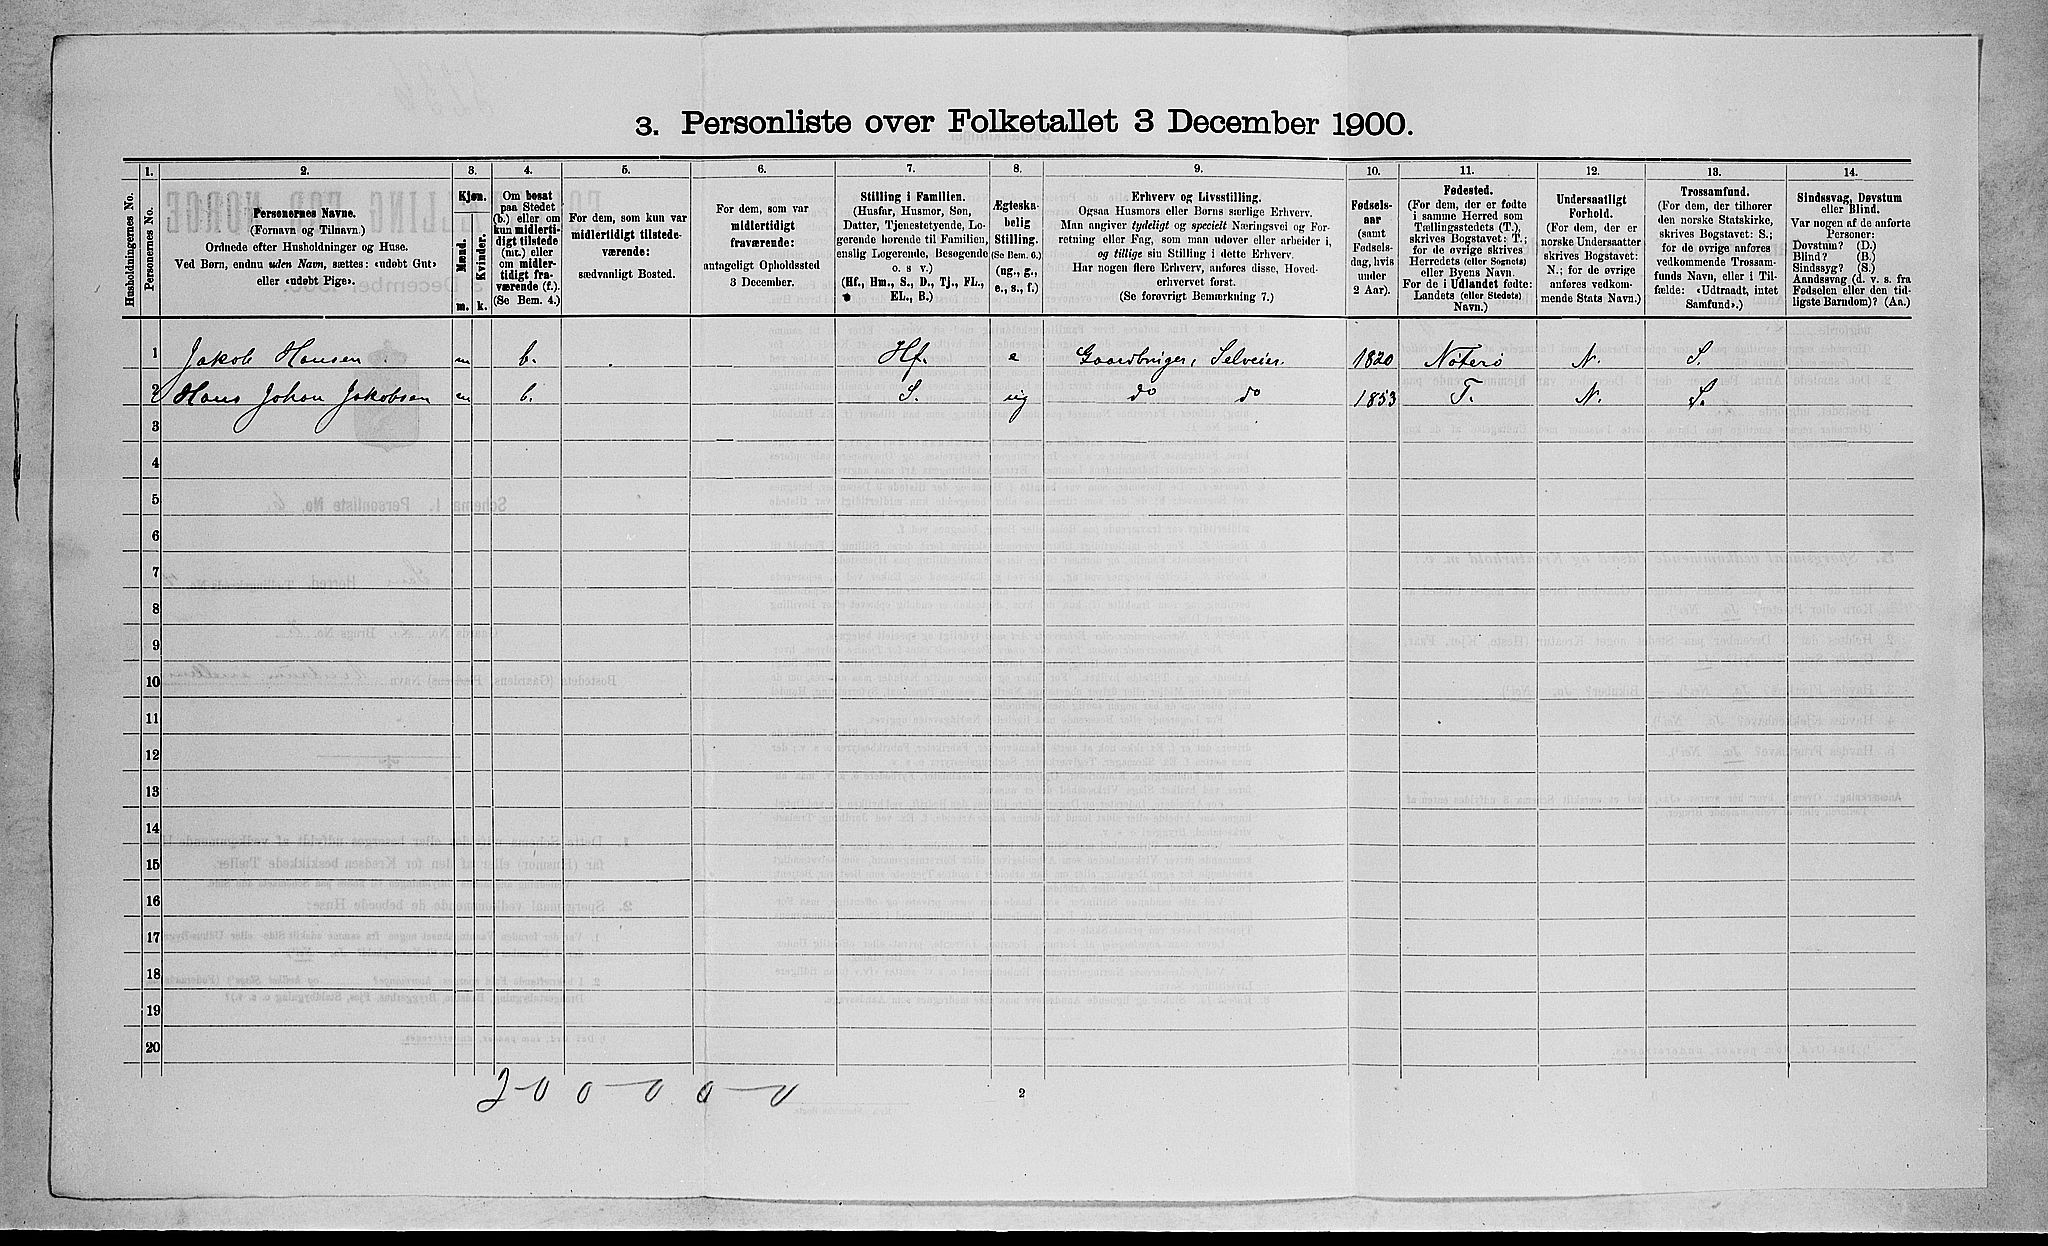 3. Personliste over Folketallet 3 December 1900.
Husholdningernes No.
1.
Personernes No.
2.
Personernes Navne.
(Fornavn og Tilnavn.)
Ordnede efter Husholdninger og Huse.
Ved Børn, endnu uden Navn, sættes: «udøbt Gut»
eller «udøbt Pige».
3.
Kjøn.
Mænd.
Kvinder.
m. k.
4.
Om bosat
paa Stedet
(b.) eller om
kun midlerti-
digt tilstede
(mt.) eller
om midler-
tidigt fra-
værende (f.).
(Se Bem. 4.)
5.
For dem, som kun var
midlertidigt tilstede-
værende:
sædvanligt Bosted.
6.
For dem, som var
midlertidigt
fraværende:
antageligt Opholdssted
3 December.
7.
Stilling i Familien.
(Husfar, Husmor, Søn,
Datter, Tjenestetyende, Lo-
gerende hørende til Familien,
enslig Logerende, Besøgende
o. s v.)
(Hf., Hm., S., D., Tj., FL.,
EL., B.)
8.
Ægteska-
belig
Stilling.
(Se Bem. 6.)
(ug., g.,
e., s., f.)
9.
Erhverv og Livsstilling.
Ogsaa Husmors eller Børns særlige Erhverv.
Man angiver tydeligt og specielt Næringsvei og For-
retning eller Fag, som man udøver eller arbeider i,
og tillige sin Stilling i dette Erhverv.
Har nogen flere Erhverv, anføres disse, Hoved-
erhvervet først.
(Se forøvrigt Bemerkning 7.)
10.
Fødsels-
aar
(samt
Fødsels-
dag, hvis
under
2 Aar).
11.
Fødested.
(For dem, der er fødte
i samme Herred som
Tællingsstedets (T.),
skrives Bogstavet: T.;
for de øvrige skrives
Herredets (eller Sognets)
eller Byens Navn.
For de i Udlandet fødte:
Landets (eller Stedets)
Navn.)
12.
Undersaatligt
Forhold.
(For dem, der er
norske Undersaatter
skrives Bogstavet:
N.; for de øvrige
anføres vedkom-
mende Stats Navn.)
13.
Trossamfund.
(For dem, der tilhører
den norske Statskirke,
skrives Bogstavet: S.;
for de øvrige anføres
vedkommende Trossam-
funds Navn, eller i Til-
fælde: «Udtraadt, intet
Samfund».)
14.
Sindssvag, Døvstum
eller Blind.
Var nogen af de anførte
Personer:
Døvstum? (D.)
Blind? (B.)
Sindssyg? (S.)
Aandssvag (d. v. s. fra
Fødselen eller den tid-
ligste Barndom)? (Aa.)
1 Jakob Hansen m b. Hf. e Gaardbruger, Selveier. 1820 Nøterø N. S.
2 Hans Johan Jakobsen m b. S. ug do do 1853 T. N. S.
3
4
5
6
7
8
9
10
11
12
13
14
15
16
17
18
19
20
2-0 0-0 0-0
2